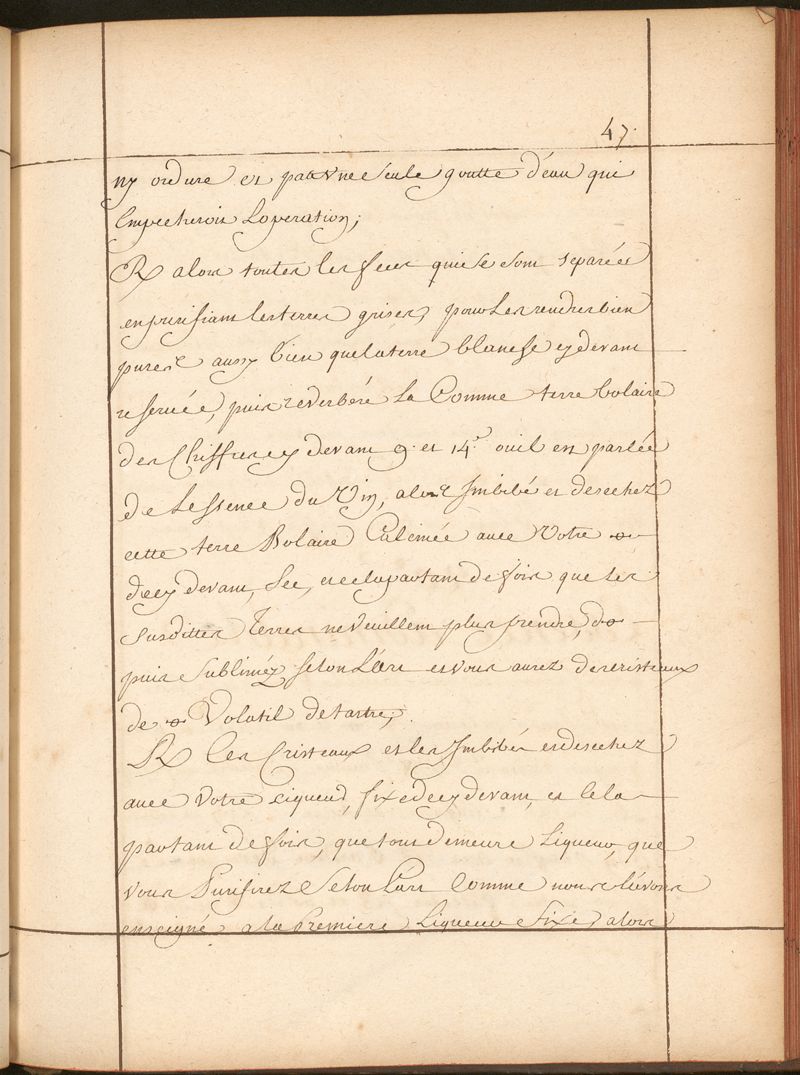 47.
ny ordure et pas une seule goutte d'eau qui
Empecheroit Loperation;
R alors toutes les feces qui se sont separées
en purifiant les terres grises, pour Les rendres bien
pures aussy bien que la terre blanche cy devant
reservée, puis reverbéré La Comme terre bolaire
des Chiffres cy devant 9. et 14. ou il est parlée
de Lessence du Vin, alors Imbibé et desechez
cette terre Bolaire Calcinée avec Votre
de cy devant, Sec, et cela partant de fois que les
Susdittes Terres ne veuillent plus prendre, do
puis Sublimez selon L'art et vous aurez des cristeaux
de Volatil de tartre;
R Ces Cristeaux et les Imbibés et desechez
avec Votre Liqueur, fixe de cy devant, et cela
partant de fois, que tout demeure Liqueur, que
vous Purifirez Selon Lart Comme nous l'avons
enseigné a la Premiere Liqueur fixe, alors